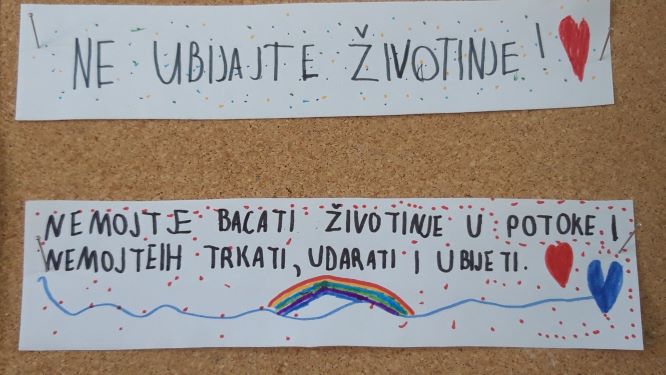 NE UBIJAJTE ŽIVOTINJE!
NEMOJTE BACATI ŽIVOTINJE U POTOKE I
NEMOJTEIH TRKATI, UDARATI I UBIJETI.